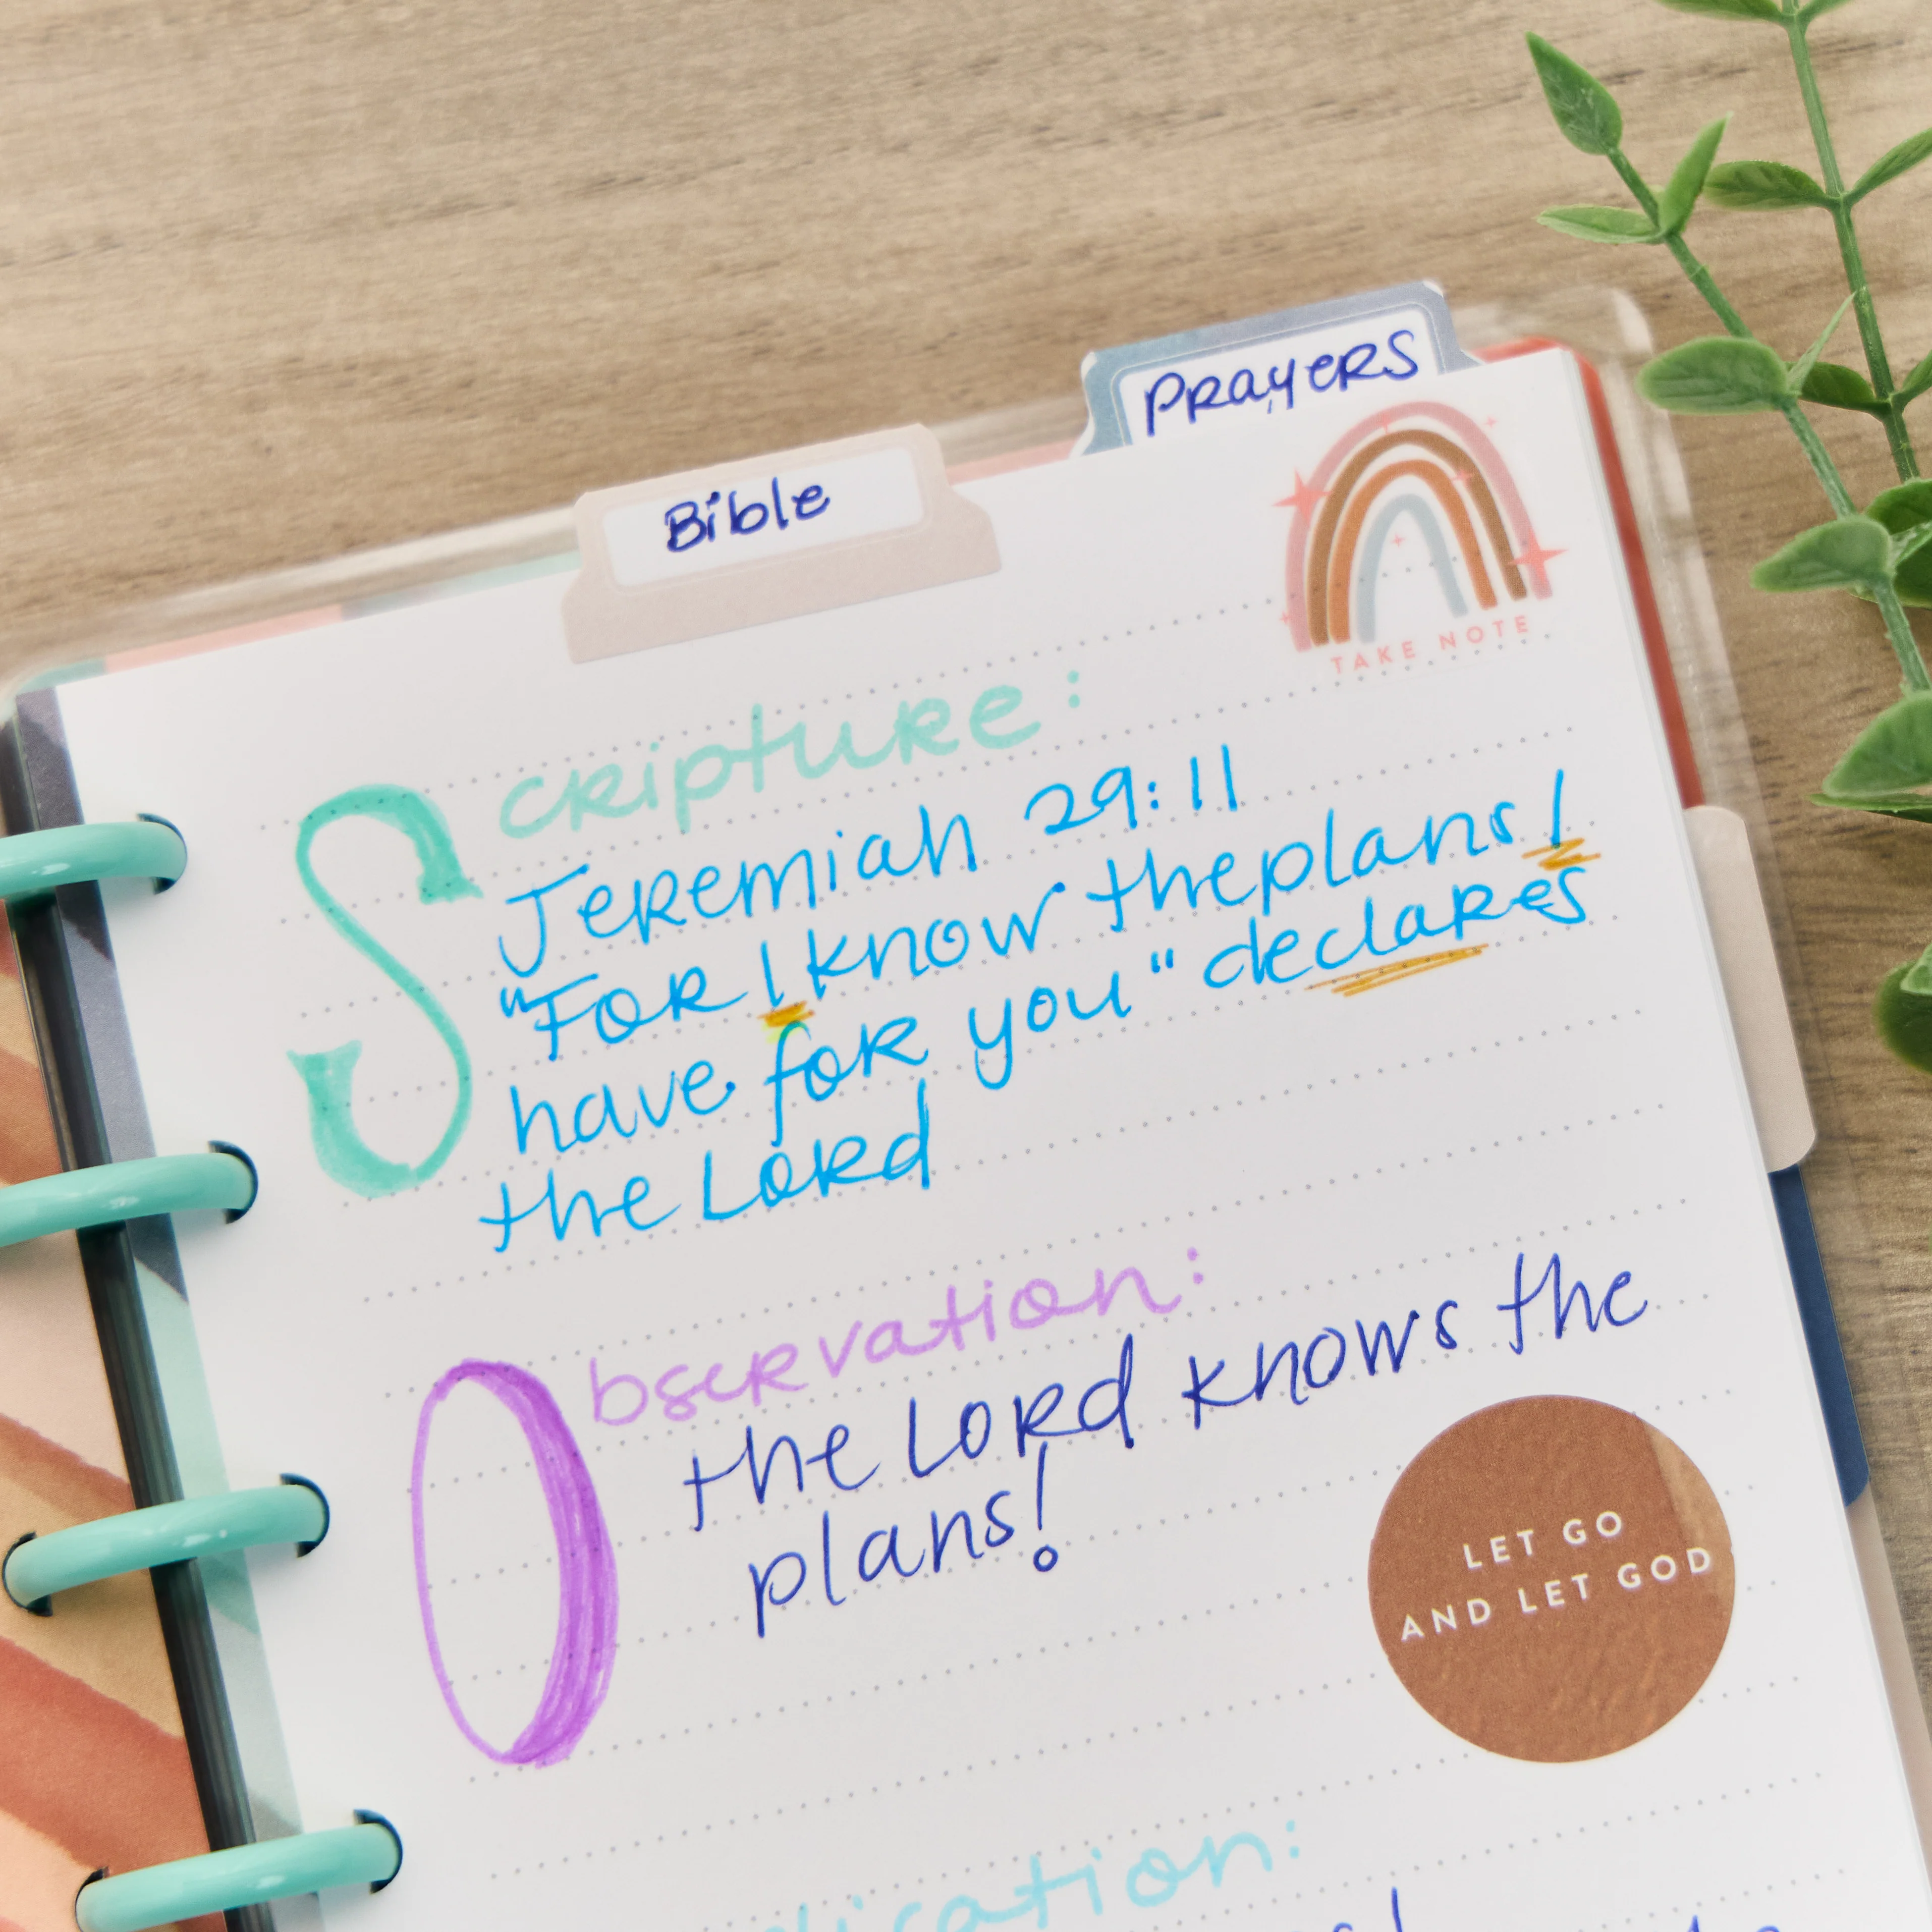 PRayeRS
Bible
TAKE NOTE
ScRiptuRe:
JeRemiah 29:11
"FoR I know the plans I
have foR you" declaRes
the LoRd
ObseRvation:
the LoRd knows the
plans!
LET GO
AND LET GOD
lication: